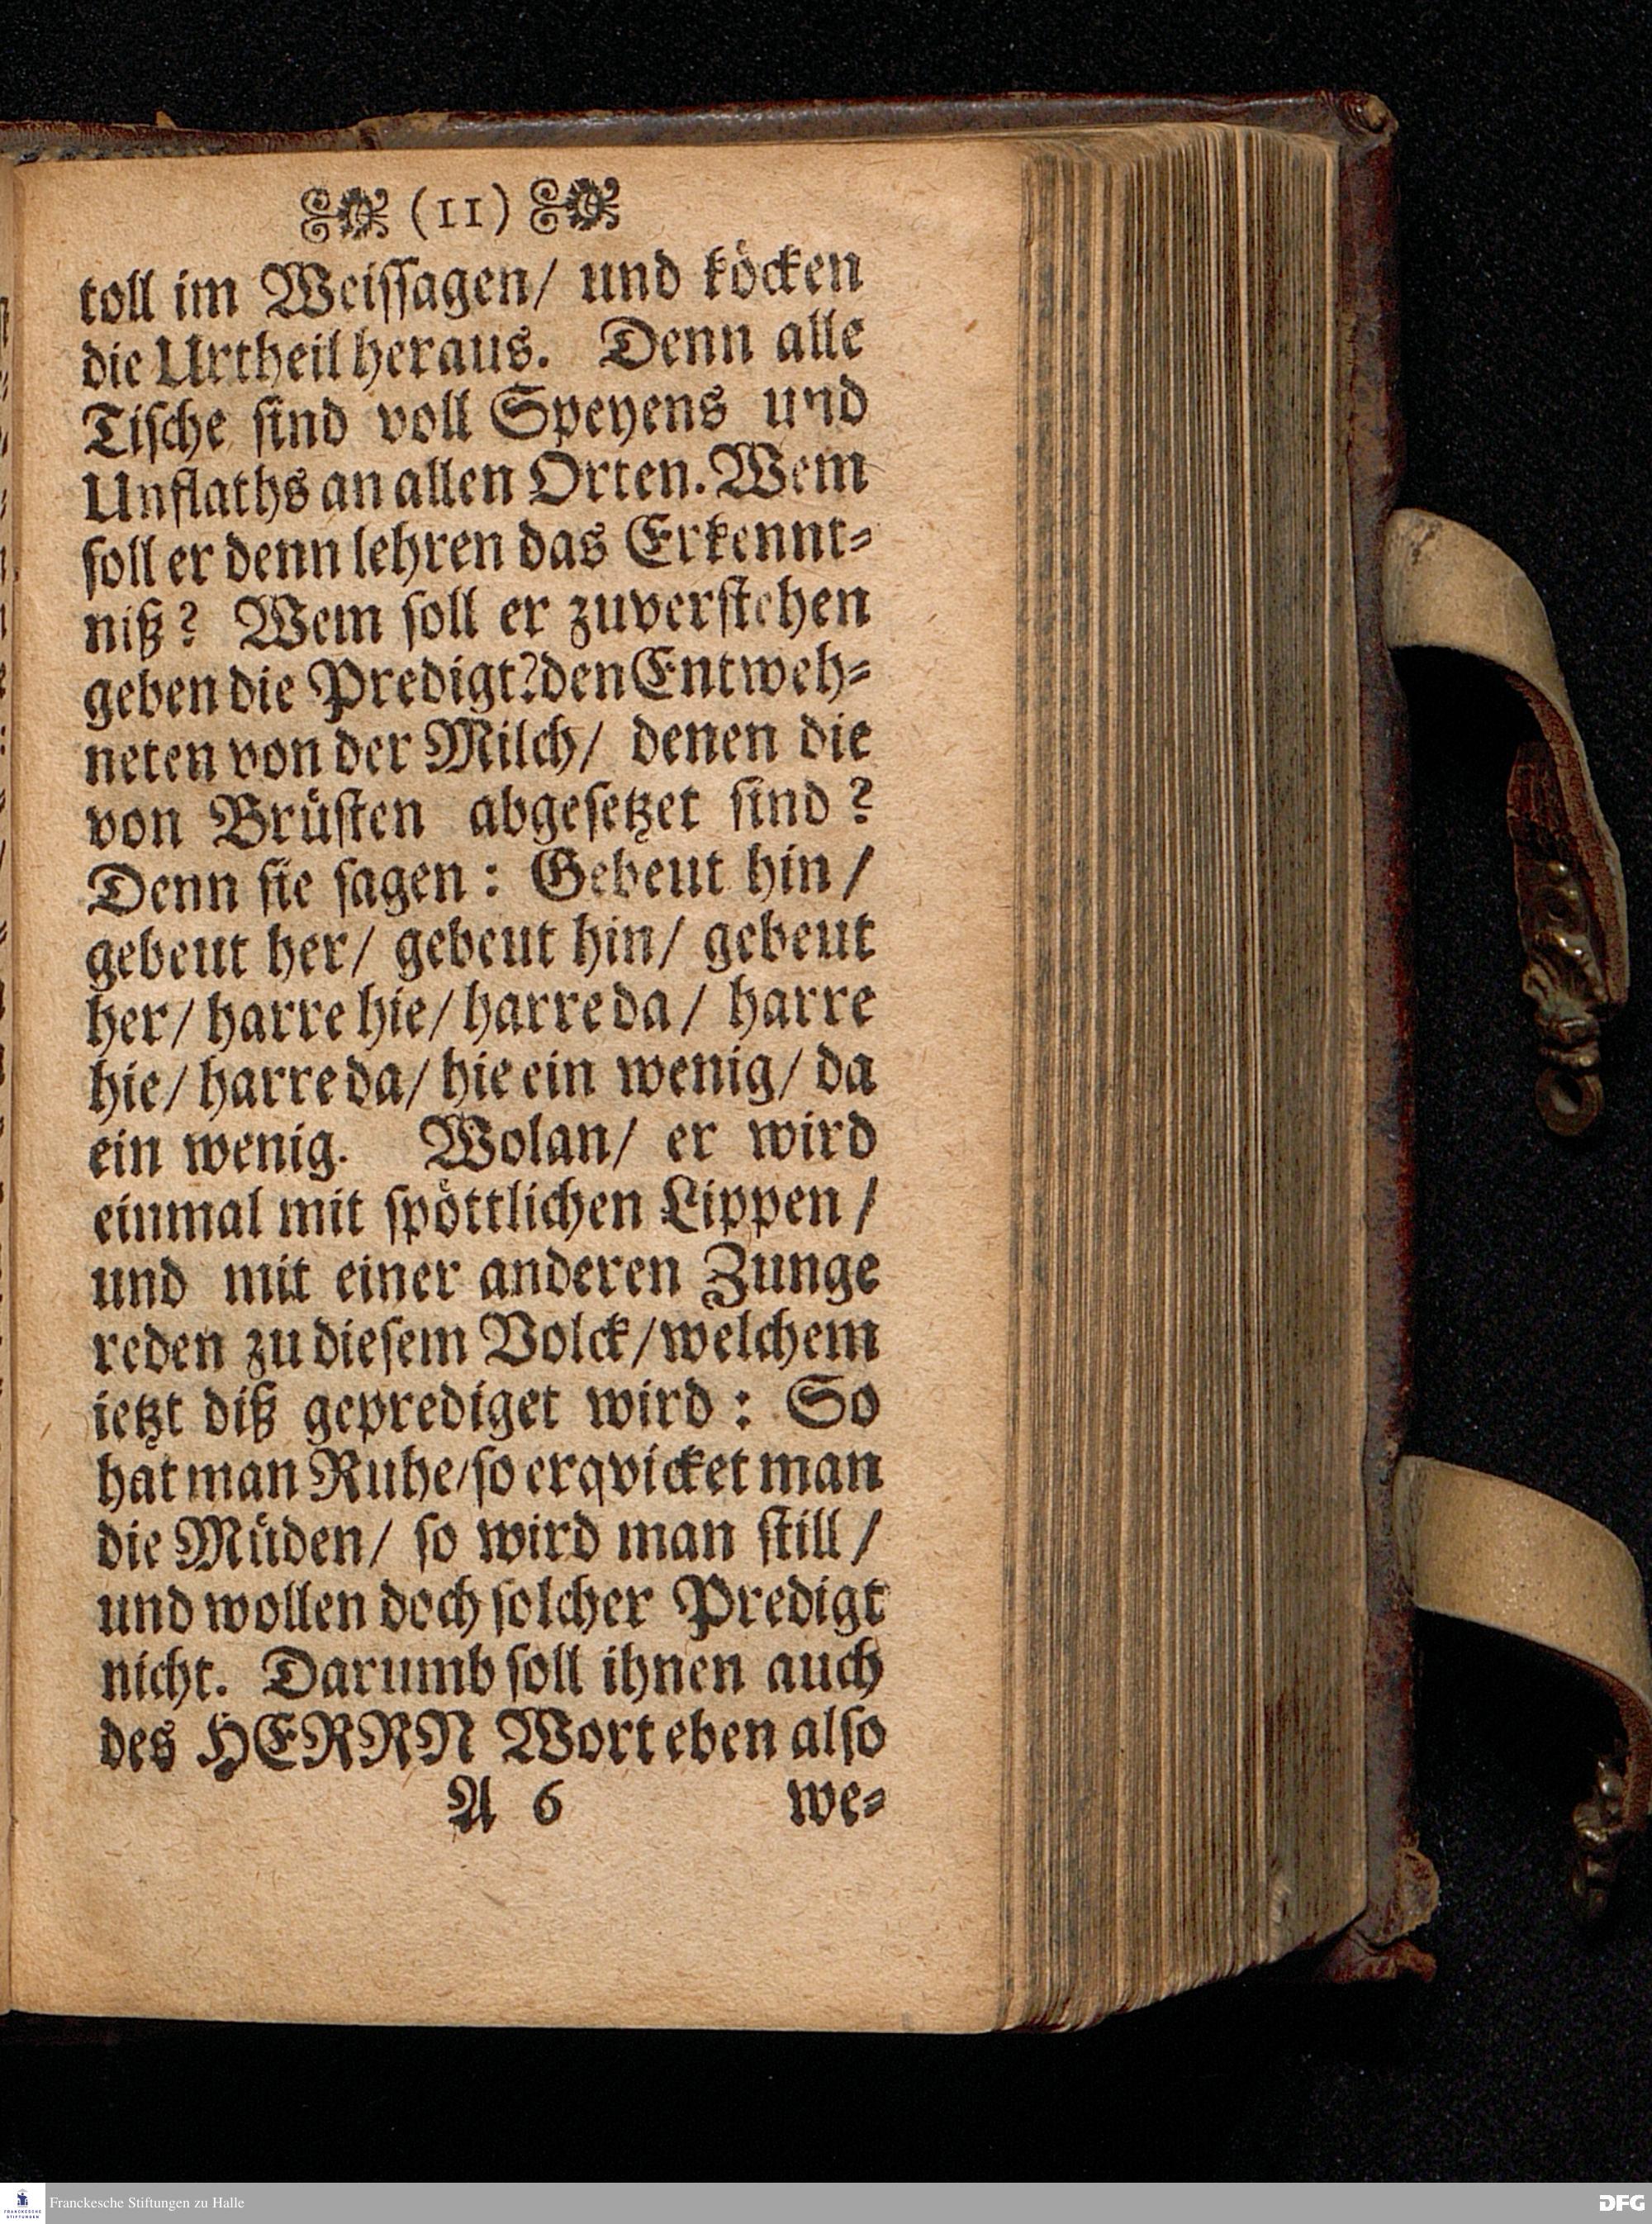 (11)
toll im Weiſſagen/ und koͤcken
die Urtheil heraus. Denn alle
Tiſche ſind voll Speyens und
Unflaths an allen Orten. Wem
ſoll er denn lehren das Erkennt⸗
niß? Wem ſoll er zuverſtehen
geben die Predigt? den Entweh⸗
neten von der Milch/ denen die
von Bruͤſten abgeſetzet ſind?
Denn ſie ſagen: Gebeut hin/
gebeut her/ gebeut hin/ gebeut
her/ harre hie/ harre da/ harre
hie/ harre da/ hie ein wenig/ da
ein wenig. Wolan/ er wird
einmal mit ſpoͤttlichen Lippen/
und mit einer anderen Zunge
reden zu dieſem Volck/ welchem
ietzt diß geprediget wird: So
hat man Ruhe/ ſo erqvicket man
die Muͤden/ ſo wird man ſtill/
und wollen doch ſolcher Predigt
nicht. Darumb ſoll ihnen auch
des HERRN Wort eben alſo
A 6 we⸗
Franckesche Stiftungen zu Halle
DFG